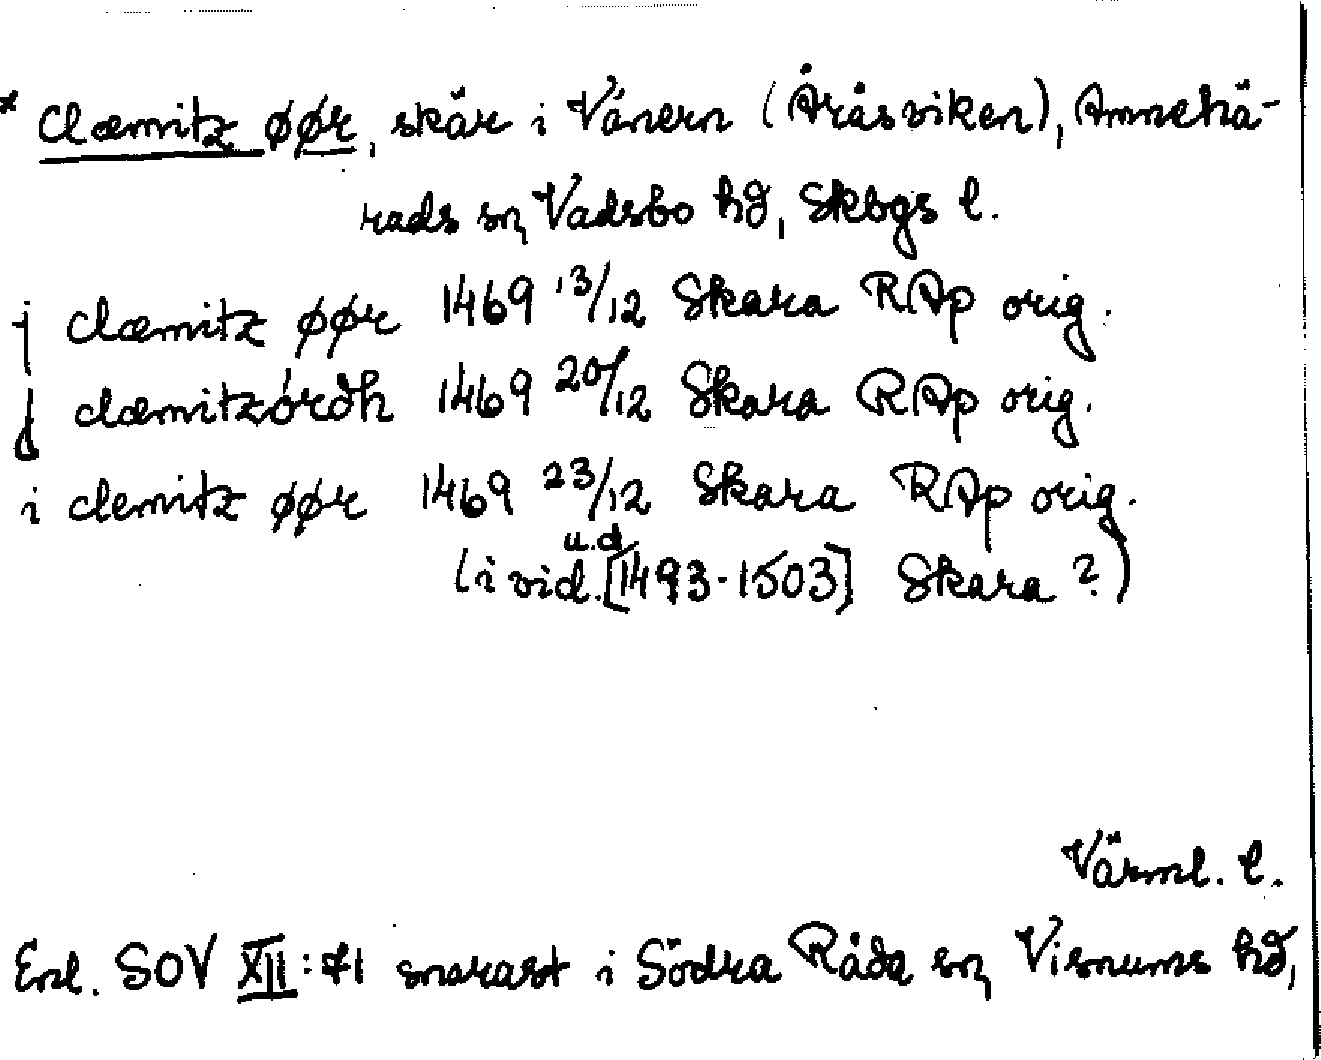 * Clæmitz øør, skär i Vänern (Åråsviken), Amnehä-
rads sn, Vadsbo hd, Skbgs l.
j clæmitz øør 1469 13/12 Skara RAp orig.
j clæmitzórdh 1469 20/12 Skara RAp orig.
i clemitz øør 1469 23/12 Skara RAp orig.
(i vid. u.d. [1493-1503] Skara ?)
Värml. l.
Enl. SOV XII: 71 snarast i Södra Råda sn, Visnums hd,